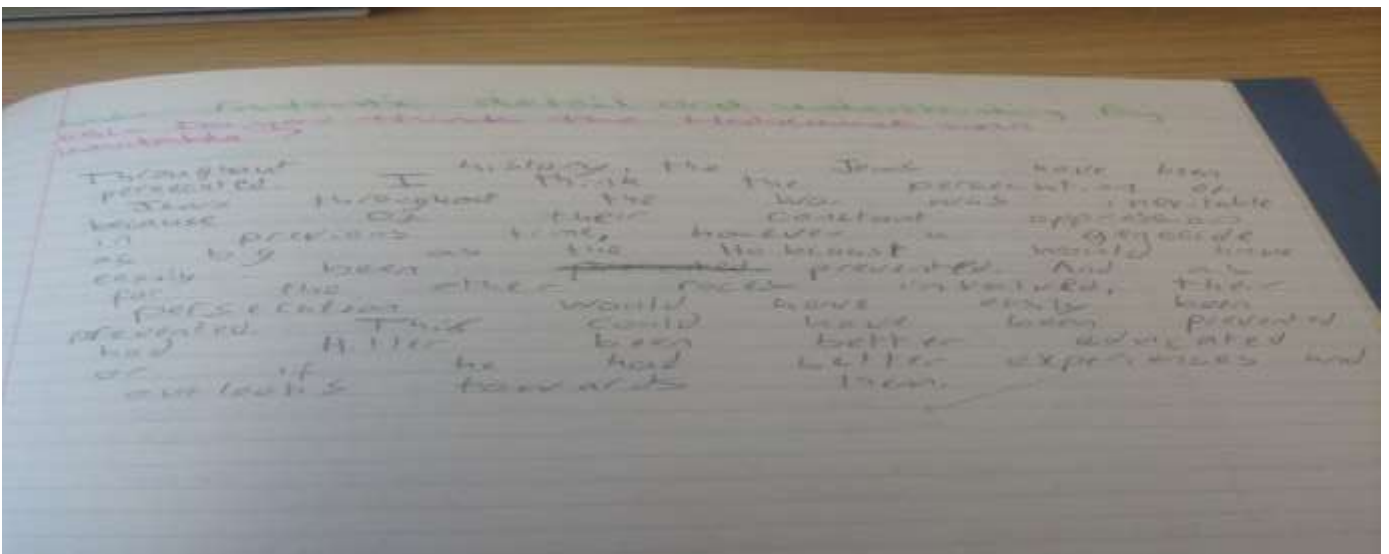 detail and understanding
Do you think the Holocaust was
inevitable
Throughout history, the Jews have been
persecuted. I think the persecution of
Jews throughout the war was inevitable
because of their constant oppression
in previous time, however a genocide
as big as the Holocaust would have
easily been prevented. And as
for the other races involved, their
persecution would have easily been
prevented. This could have been prevented
had Hitler been better educated
or if he had better experiences and
outlooks towards them.